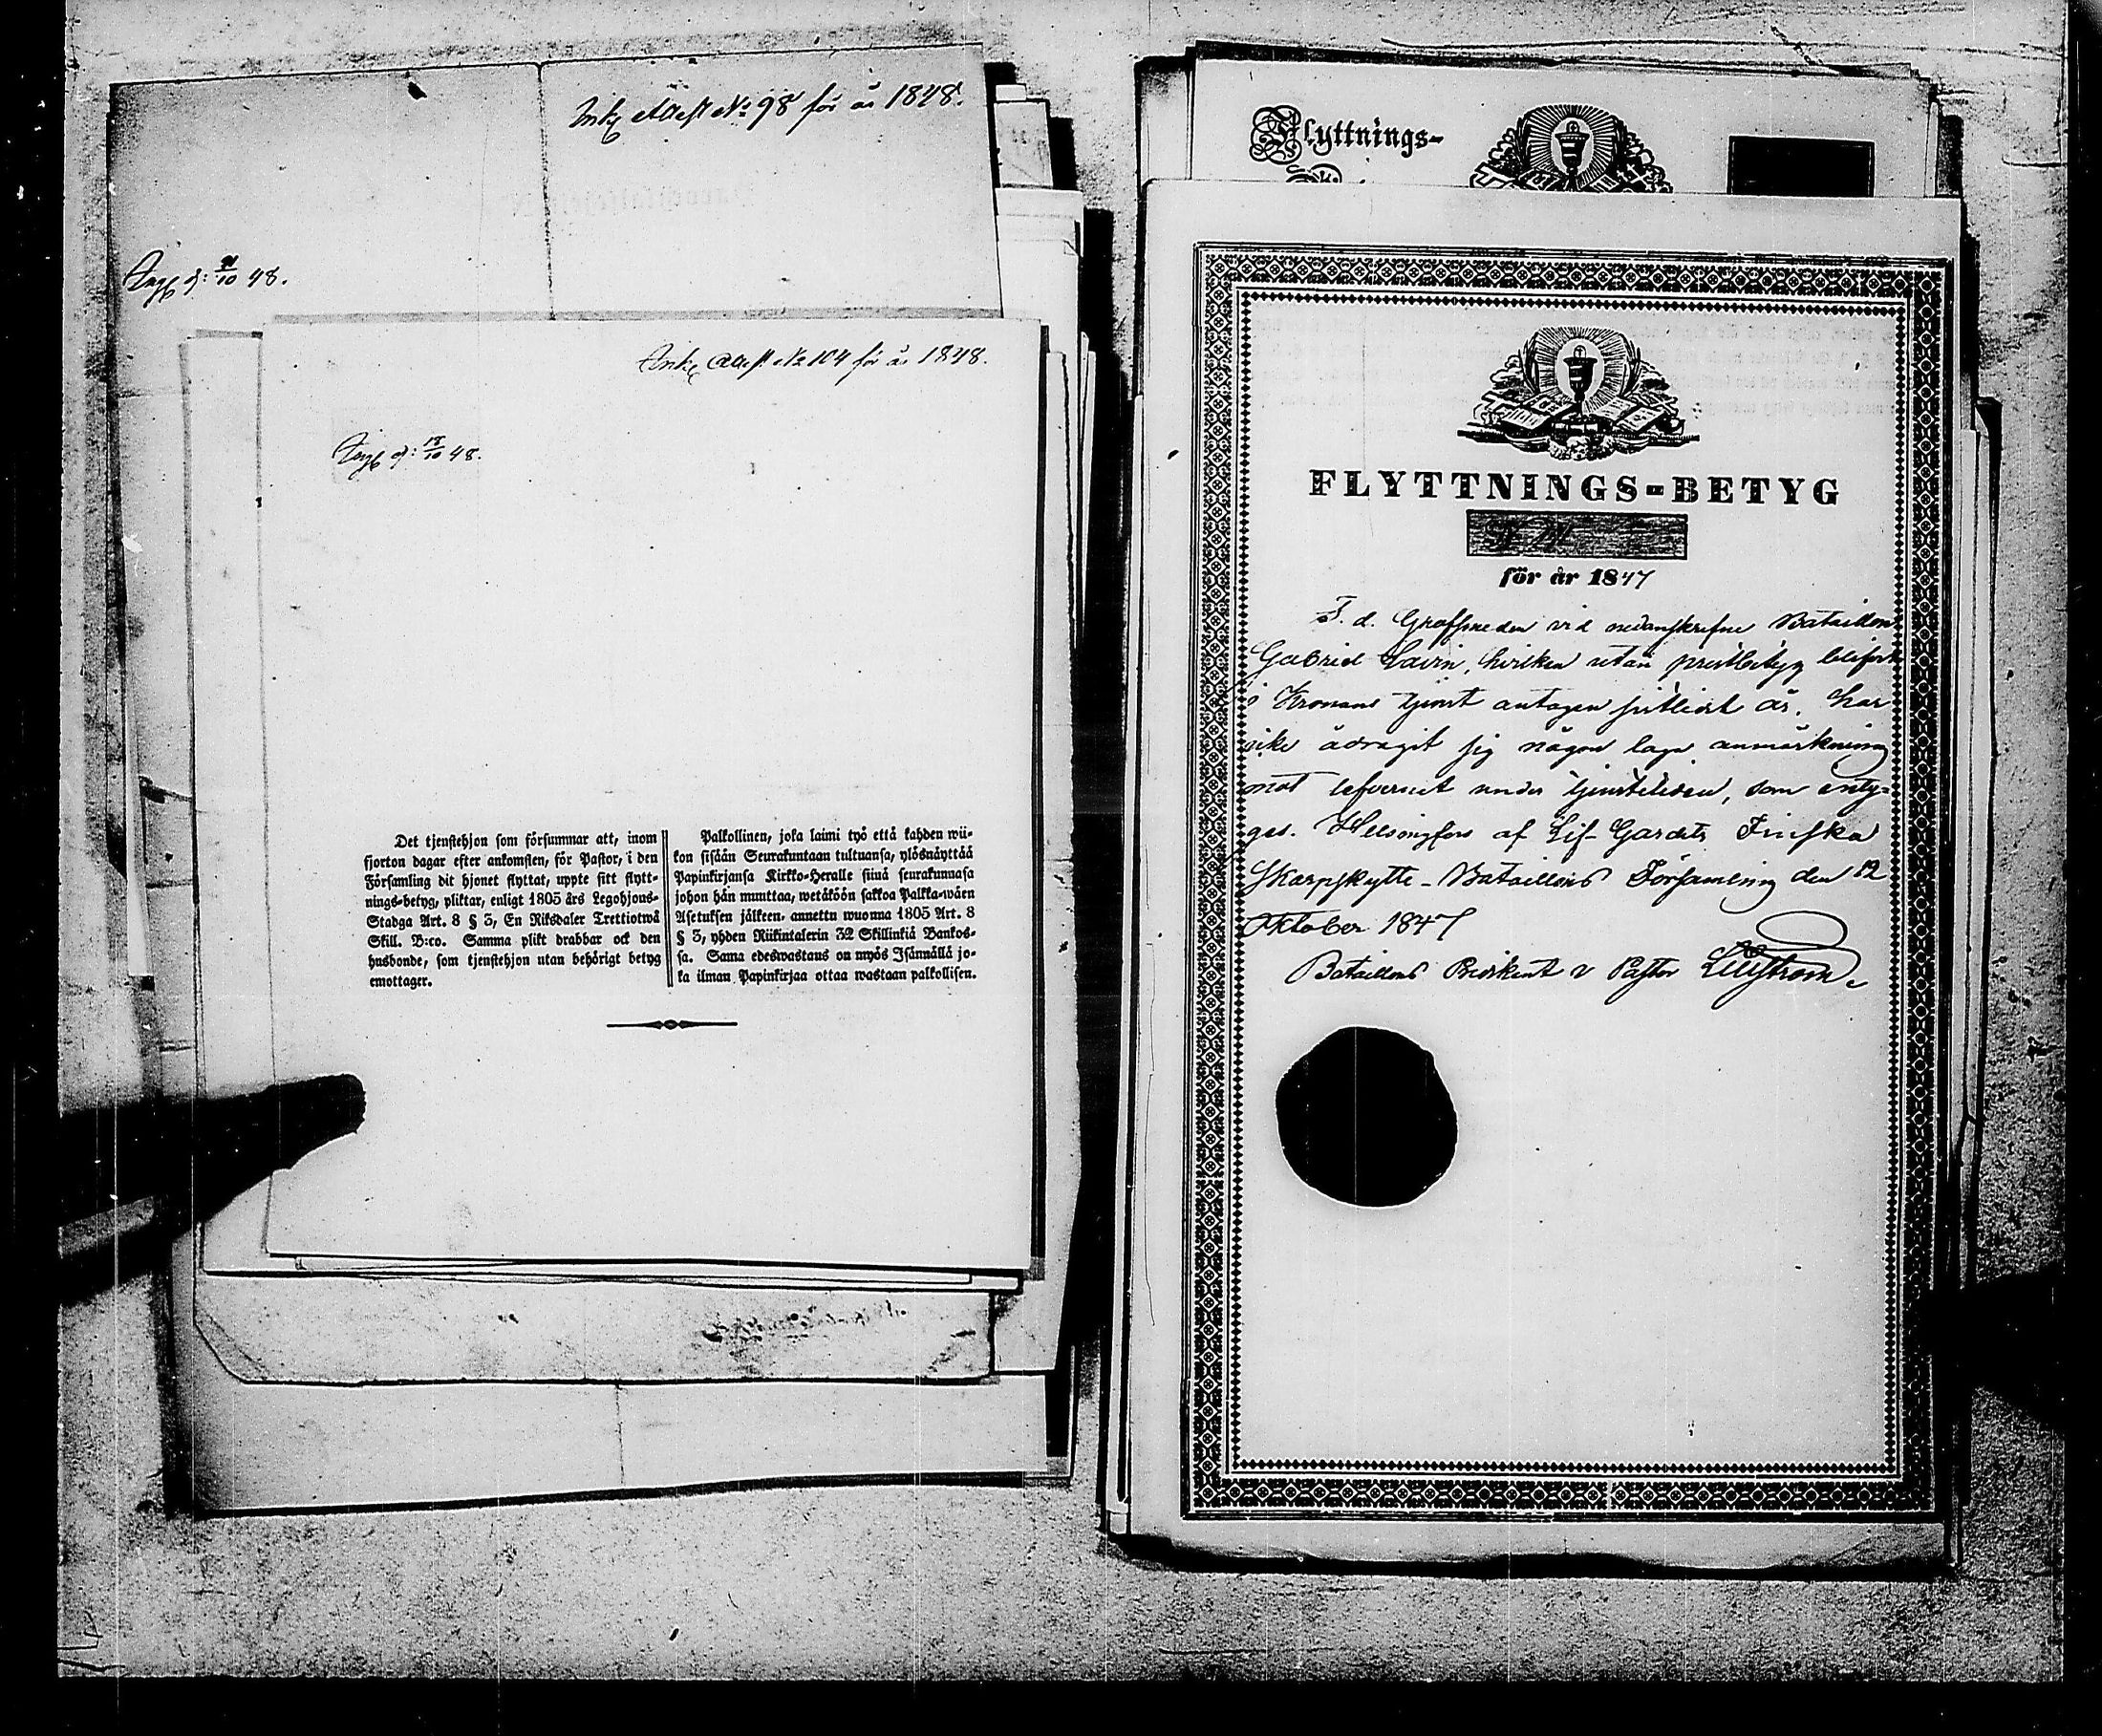 Ink. Attest No 98 för år 1848.
Ank. Attest No 104 för år 1848.
Det tjenstehjon som försummar att, inom
fjorton dagar efter ankomsten, för Pastor, i den
Församling dit hjonet flyttat, uppte sitt flytt-
nings-betyg, pliktar, enligt 1805 års Legohjons-
Stadga Art. 8 § 3, En Riksdaler Trettiotwå
Skill. B:co. Samma plikt drabbar ock den
husbonde, som tjenstehjon utan behörigt betyg
emottager.
Palkollinen, joka laimi lyö että kahden wii-
kon sisään Seurakuntaan tultuansa, ylösnäyttää
Papinkirjansa Kirkko-Heralle siinä seurakunnasa
johon hän muuttaa, wetäköön sakkoa Palkka-wäen
Asetuksen jälkeen, annettu wuonna 1805 Art. 8
§ 3, yhden Riikintalerin 32 Skillinkiä Bankos-
sa. Sama edeswastaus on myös Isännällä jo-
ka ilman Papinkirjaa ottaa wastaan palkollisen.
Flyttnings-
FLYTTNINGS-BETYG
för år 1847
F. d. Grofsmeden vid nedanskrefne Bataillon
Gabriel Lavin, hvilken utan prestbetyg blifvit
i Kronans tjenst antagen sistlidit år, har
icke ådragit sig någon laga anmärkning
mot lefvernet under tjenstetiden, som inty-
gas. Helsingfors af Lif-Gardets Finska
Skarpskytte-Bataillons Församling den 12
Oktober 1847
Bataillons Predikant v Pastor